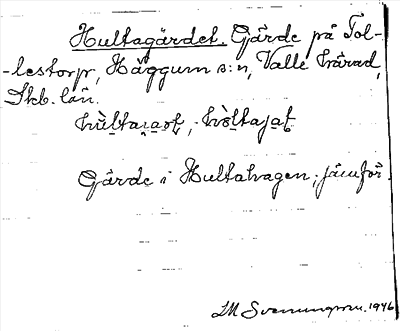 Hultagärdet. Gärde på Tol-
-lestorp, Häggum s:n, Valle härad,
Skb. län.
hùltaja𝑟t, hòltajat
Gärde i Hultahagen; jämför
IM Svenungsson. 1946